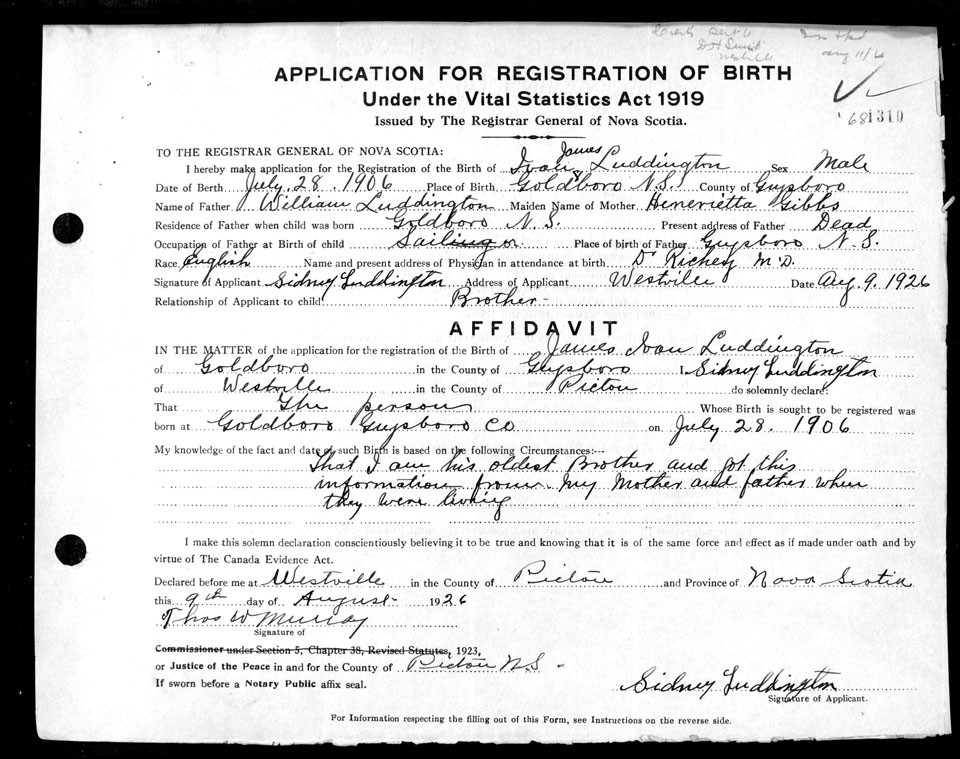 APPLICATION FOR REGISTRATION OF BIRTH
Under the Vital Statistics Act 1919
Issued by The Registrar General of Nova Scotia.
681310
TO THE REGISTRAR GENERAL OF NOVA SCOTIA:
I hereby make application for the Registration of the Birth of James Ivan Luddington Sex Male
Date of Birth July. 28. 1906 Place of Birth Goldboro N.S. County of Guysboro
Name of Father William Luddington Maiden Name of Mother Henerietta Gibbs
Residence of Father when child was born Goldboro N. S. Present address of Father Dead
Occupation of Father at Birth of child Sailing or Place of birth of Father Guysboro N. S.
Race English Name and present address of Physician in attendance at birth Dr Richey M.D.
Signature of Applicant Sidney Luddington Address of Applicant Westville Date Aug. 9. 1926
Relationship of Applicant to child Brother
AFFIDAVIT
IN THE MATTER of the application for the registration of the Birth of James Ivan Luddington
of Goldboro in the County of Guysboro I, Sidney Luddington
of Westville in the County of Pictou do solemnly declare:
That The person Whose Birth is sought to be registered was
born at Goldboro Guysboro Co on July 28. 1906
My knowledge of the fact and date of such Birth is based on the following Circumstances:--
That I am his oldest Brother and got this
information from my Mother and father when
they were living
I make this solemn declaration conscientiously believing it to be true and knowing that it is of the same force and effect as if made under oath and by
virtue of The Canada Evidence Act.
Declared before me at Westville in the County of Pictou and Province of Nova Scotia
this 9th day of August 1926
Thos W Murray
Signature of
Commissioner under Section 5, Chapter 38, Revised Statutes, 1923,
or Justice of the Peace in and for the County of Pictou N.S.
If sworn before a Notary Public affix seal.
Sidney Luddington
Signature of Applicant.
For Information respecting the filling out of this Form, see Instructions on the reverse side.